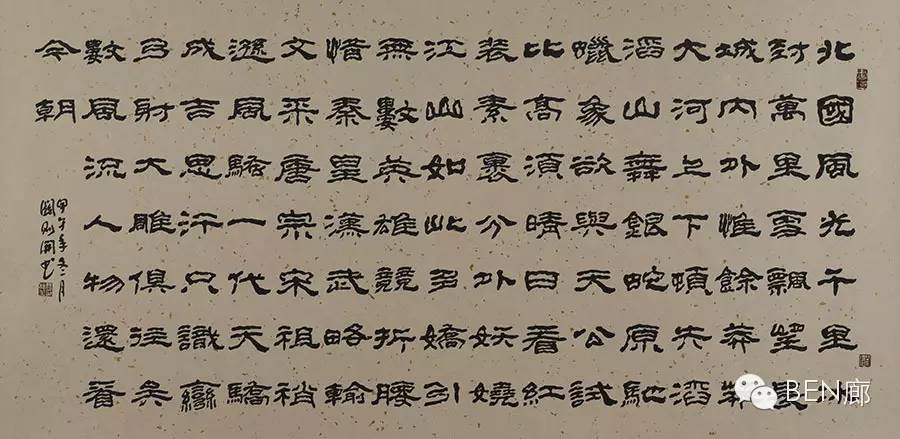 北國風光千里冰
封萬里雪飄望長
城內外惟餘莽莽
大河上下頓失滔
滔山舞銀蛇原馳
蠟象欲與天公試
比高須晴日看紅
裝素裹分外妖嬈
江山如此多嬌引
無數英雄競折腰
惜秦皇漢武略輸
文采唐宗宋祖稍
遜風騷一代天驕
成吉思汗只識彎
弓射大雕俱往矣
數風流人物還看
今朝
甲午年冬月
BEN廊